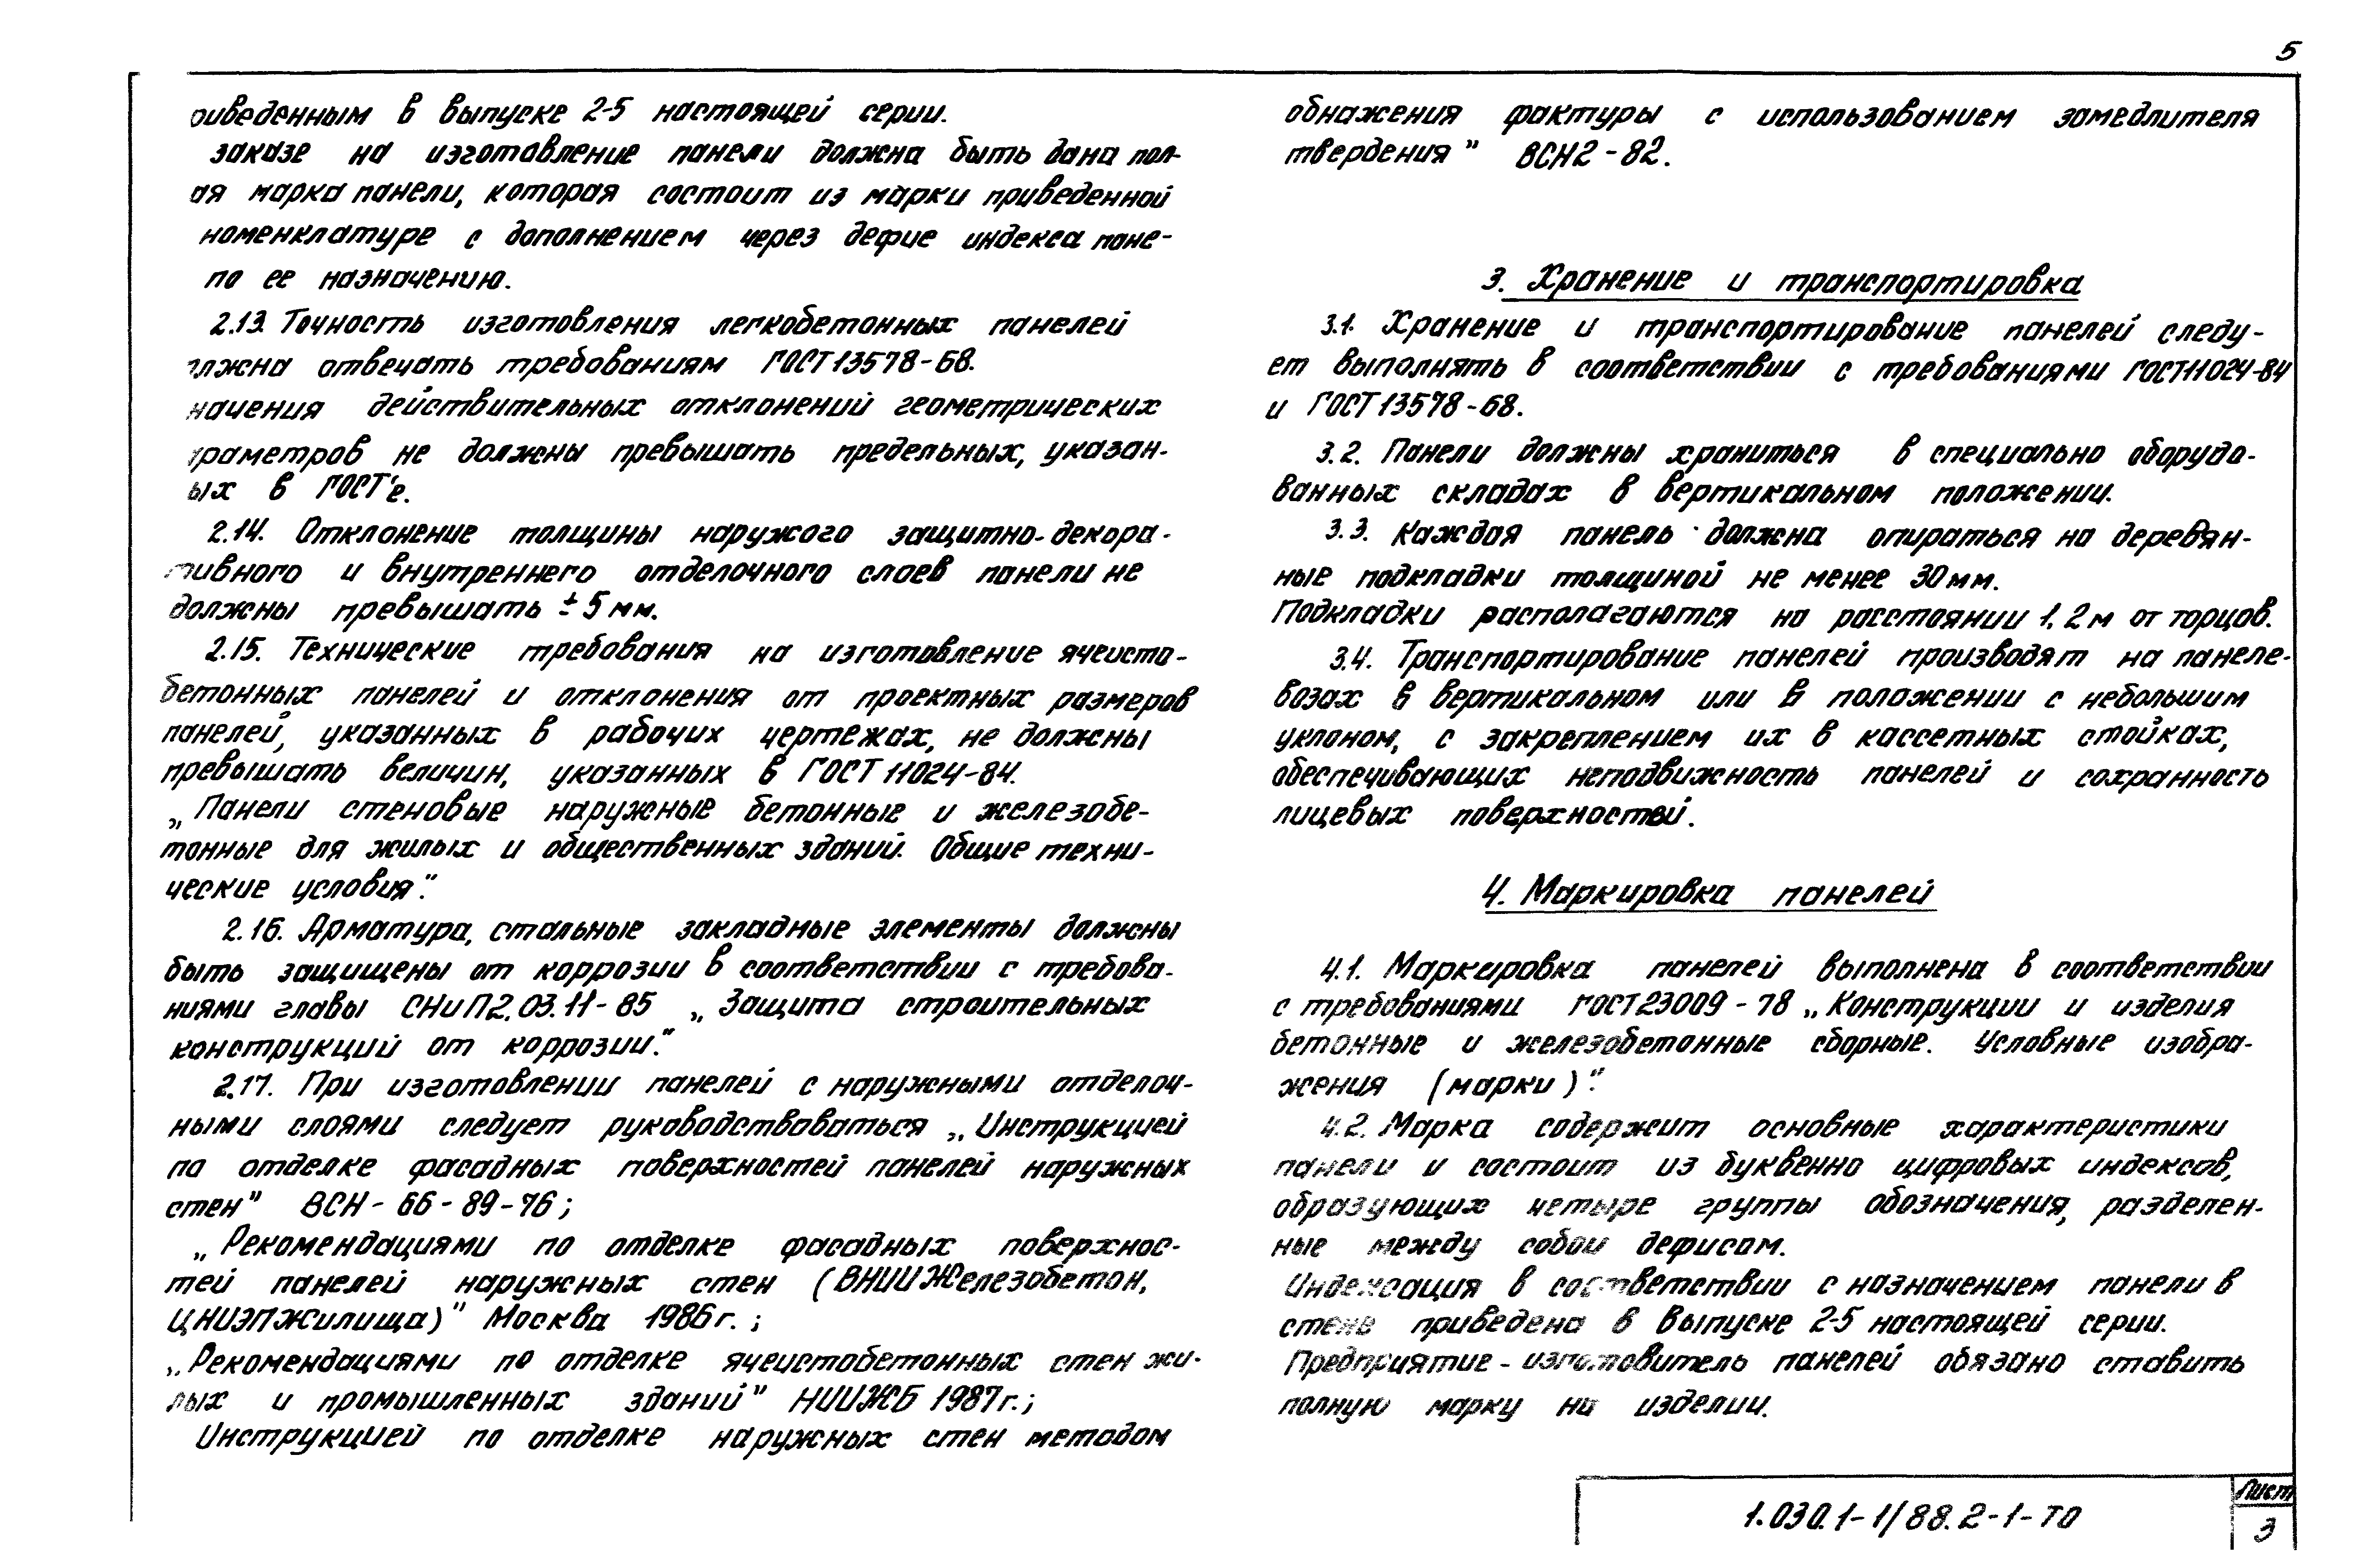 5
риведенным в выпуске 2-5 настоящей серии.
заказе на изготовление панели должна быть дана пол-
ая марка панели, которая состоит из марки приведенной
номенклатуре с дополнением через дефис индекса пане-
по ее назначению.
2.13. Точность изготовления легкобетонных панелей
лжна отвечать требованиям ГОСТ 13578-68.
начения действительных отклонений геометрических
раметров не должны превышать предельных, указан-
ых в ГОСТ'е.
2.14. Отклонение толщины наружого защитно-декора-
тивного и внутреннего отделочного слоев панели не
должны превышать ± 5 мм.
2.15. Технические требования на изготовление ячеисто-
бетонных панелей и отклонения от проектных размеров
панелей, указанных в рабочих чертежах, не должны
превышать величин, указанных в ГОСТ 11024-84.
„Панели стеновые наружные бетонные и железобе-
тонные для жилых и общественных зданий. Общие техни-
ческие условия".
2.16. Арматура, стальные закладные элементы должны
быть защищены от коррозии в соответствии с требова-
ниями главы СНиП 2.03.11-85 „Защита строительных
конструкций от коррозии."
2.17. При изготовлении панелей с наружными отделоч-
ными слоями следует руководствоваться „Инструкцией
по отделке фасадных поверхностей панелей наружных
стен" ВСН-66-89-76;
„Рекомендациями по отделке фасадных поверхнос-
тей панелей наружных стен (ВНИИЖелезобетон,
ЦНИЭПЖилища)" Москва 1986г.;
„Рекомендациями по отделке ячеистобетонных стен жи-
лых и промышленных зданий" НИИЖБ 1987г.;
Инструкцией по отделке наружных стен методом
обнажения фактуры с использованием замедлителя
твердения" ВСН2-82.
3. Хранение и транспортировка
3.1. Хранение и транспортирование панелей следу-
ет выполнять в соответствии с требованиями ГОСТ11024-84
и ГОСТ 13578-68.
3.2. Панели должны храниться в специально оборудо-
ванных складах в вертикальном положении.
3.3. Каждая панель должна опираться на деревян-
ные подкладки толщиной не менее 30 мм.
Подкладки располагаются на расстоянии 1,2 м от торцов.
3.4. Транспортирование панелей производят на панеле-
возах в вертикальном или в положении с небольшим
уклоном, с закреплением их в кассетных стойках,
обеспечивающих неподвижность панелей и сохранность
лицевых поверхностей.
4. Маркировка панелей
4.1. Маркировка панелей выполнена в соответствии
с требованиями ГОСТ23009-78 „Конструкции и изделия
бетонные и железобетонные сборные. Условные изобра-
жения (марки)".
4.2. Марка содержит основные характеристики
панели и состоит из буквенно цифровых индексов,
образующих четыре группы обозначения, разделен-
ные между собой дефисом.
Индексация в соответствии с назначением панели в
стене приведена в Выпуске 2-5 настоящей серии.
Предприятие-изготовитель панелей обязано ставить
полную марку на изделии.
1.030.1-1/88.2-1-ТО
Лист
3